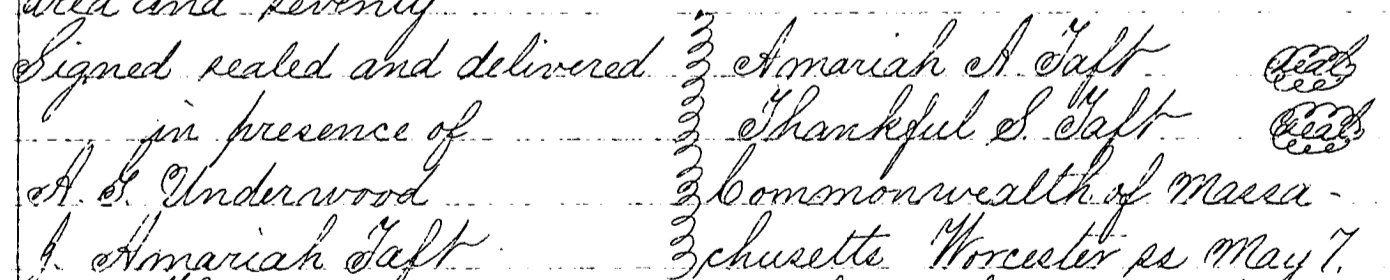 and seventy
Signed sealed and delivered
in presence of
A. G. Underwood
J. Amariah Taft
Amariah A Taft seal
Thankful S. Taft seal
Commonwealth of Massa-
chusetts Worcester ss May 7.